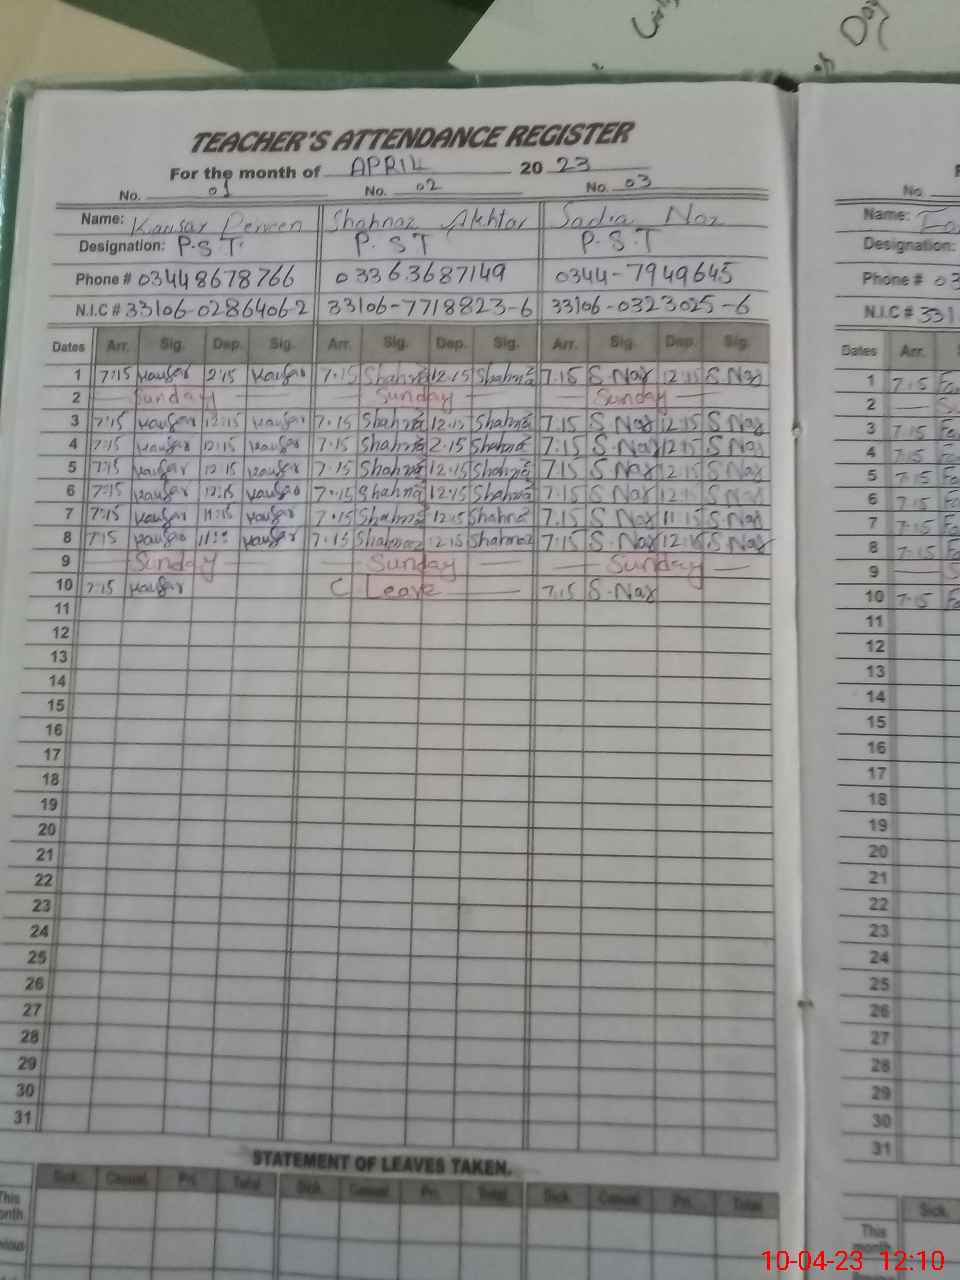 Day
TEACHER'S ATTENDANCE REGISTER
For the month of APRIL 2023
No. 01 No. 02 No. 03 No.
Name: Kausar Perveen Shahnaz Akhtar Sadia Naz Name:
Designation: P.S.T. P.ST P.S.T Designation:
Phone # 03448678766 03363687149 0344-7949645 Phone # 03
N.I.C # 33106-0286406-2 33106-7718823-6 33106-0323025-6 N.I.C # 331
Dates Arr. Sig. Dep. Sig. Arr. Sig. Dep. Sig. Arr. Sig. Dep. Sig. Dates Arr.
1 7:15 Kausar 2:15 Kausar 7.15 Shahna 12.15 Shahna 7.15 S.Naz 12:15 S.Naz 1 7.15 Fa
2 Sunday Sunday Sunday 2 Su
3 7:15 Kausar 12:15 Kausar 7.15 Shahna 12.15 Shahna 7.15 S.Naz 12.15 S.Naz 3 7.15 Fa
4 7:15 Kausar 12:15 Kausar 7.15 Shahna 2.15 Shahna 7.15 S.Naz 12.15 S.Naz 4 7.15 Fa
5 7:15 Kausar 12 15 Kausar 7.15 Shahna 12.15 Shahna 7.15 S.Naz 12.15 S.Naz 5 7.15 Fa
6 7:15 Kausar 12:15 Kausar 7.15 Shahna 12.15 Shahna 7.15 S.Naz 12.15 S.Naz 6 7.15 Fa
7 7:15 Kausar 11:15 Kausar 7.15 Shahna 12.15 Shahna 7.15 S.Naz 11.15 S.Naz 7 7.15 Fa
8 7:15 Kausar Kausar 7.15 Shahnaz 12.15 Shahnaz 7.15 S.Naz 12.15 S.Naz 8 7.15 Fa
9 Sunday Sunday Sunday 9 S
10 7:15 Kausar C Leave 7.15 S.Naz 10 7.15 Fa
11 11
12 12
13 13
14 14
15 15
16 16
17 17
18 18
19 19
20 20
21 21
22 22
23 23
24 24
25 25
26 26
27 27
28 28
29 29
30 30
31 31
STATEMENT OF LEAVES TAKEN.
Sick. Casual. Pri. Total Sick. Casual. Pri. Total. Sick Casual. Pri. Total Sick.
This This
onth month
vious
10-04-23 12:10